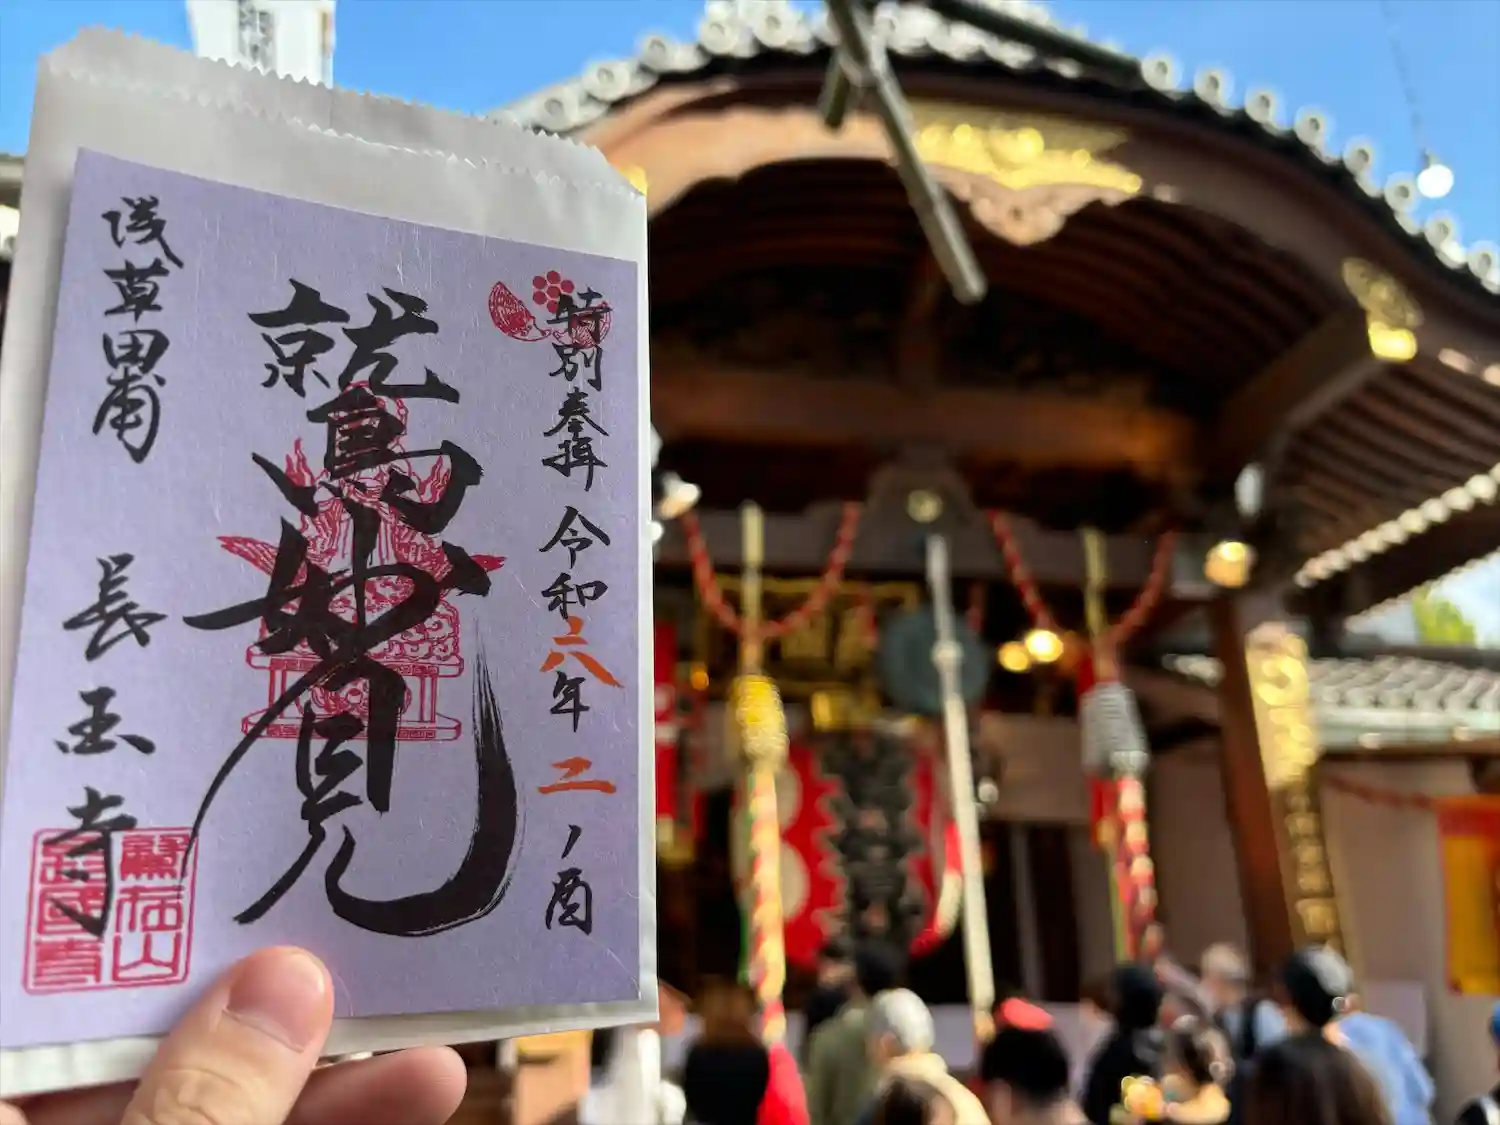 特別奉拝 令和六年 二ノ酉
鷲妙見
浅草田甫
長國寺
鷲在山
長國寺